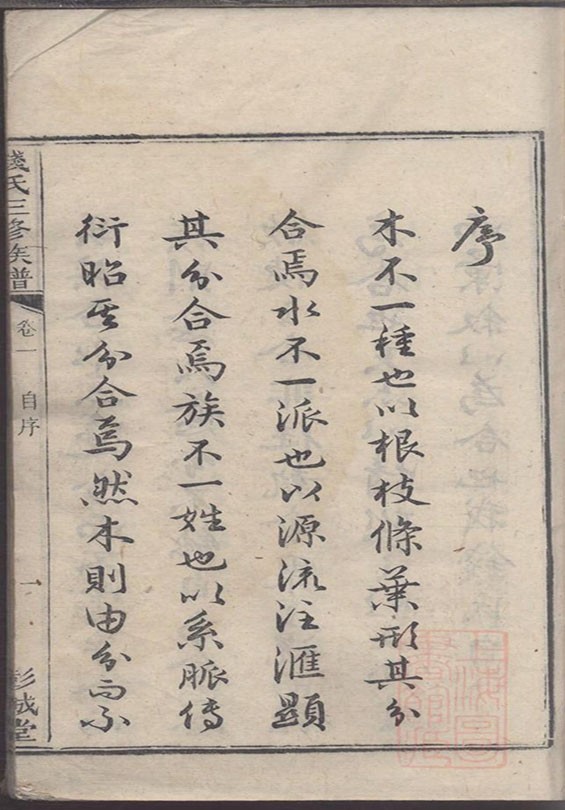 序
木不一種也以根枝條葉形其分
合焉水不一派也以源流注滙顯
其分合焉族不一姓也以系脈傳
衍昭其分合焉然木則由分而不
錢氏三修族譜
卷一
自序
一
彭城堂